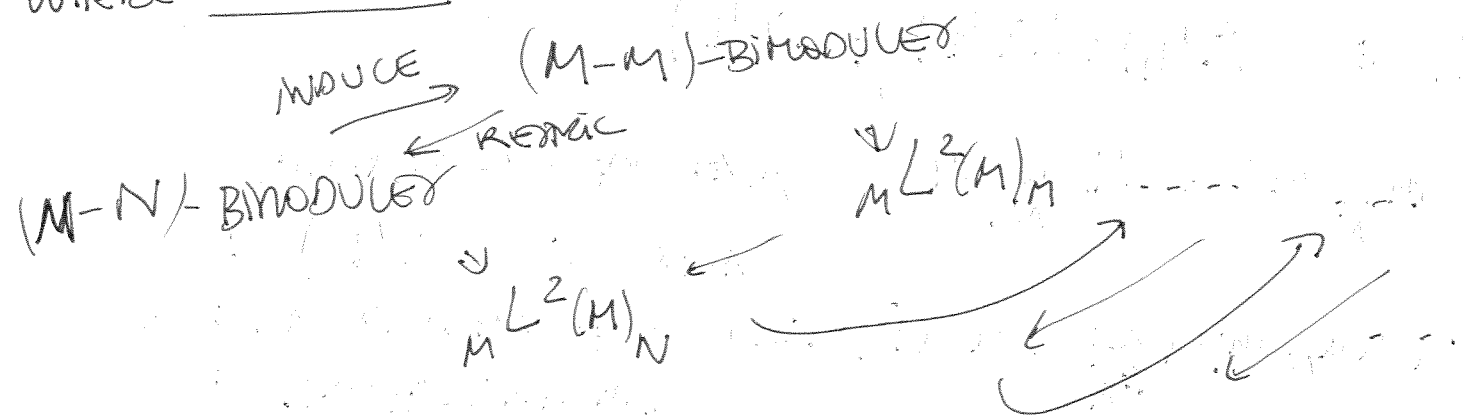 INDUCE
(M-M)-BIMODULES
RESTRIC
(M-N)-BIMODULES
∪
M L²(M)M - - - - - -
∪
M L²(M)N